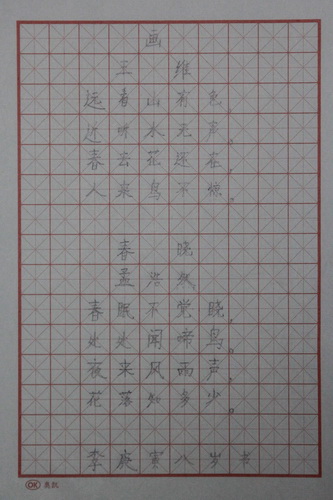 画
王维
远看山有色。
近听水无声。
春去花还在，
人来鸟不惊。
春晓
孟浩然
春眠不觉晓，
处处闻啼鸟。
夜来风雨声，
花落知多少。
李庭寅八岁书
OK 奥凯